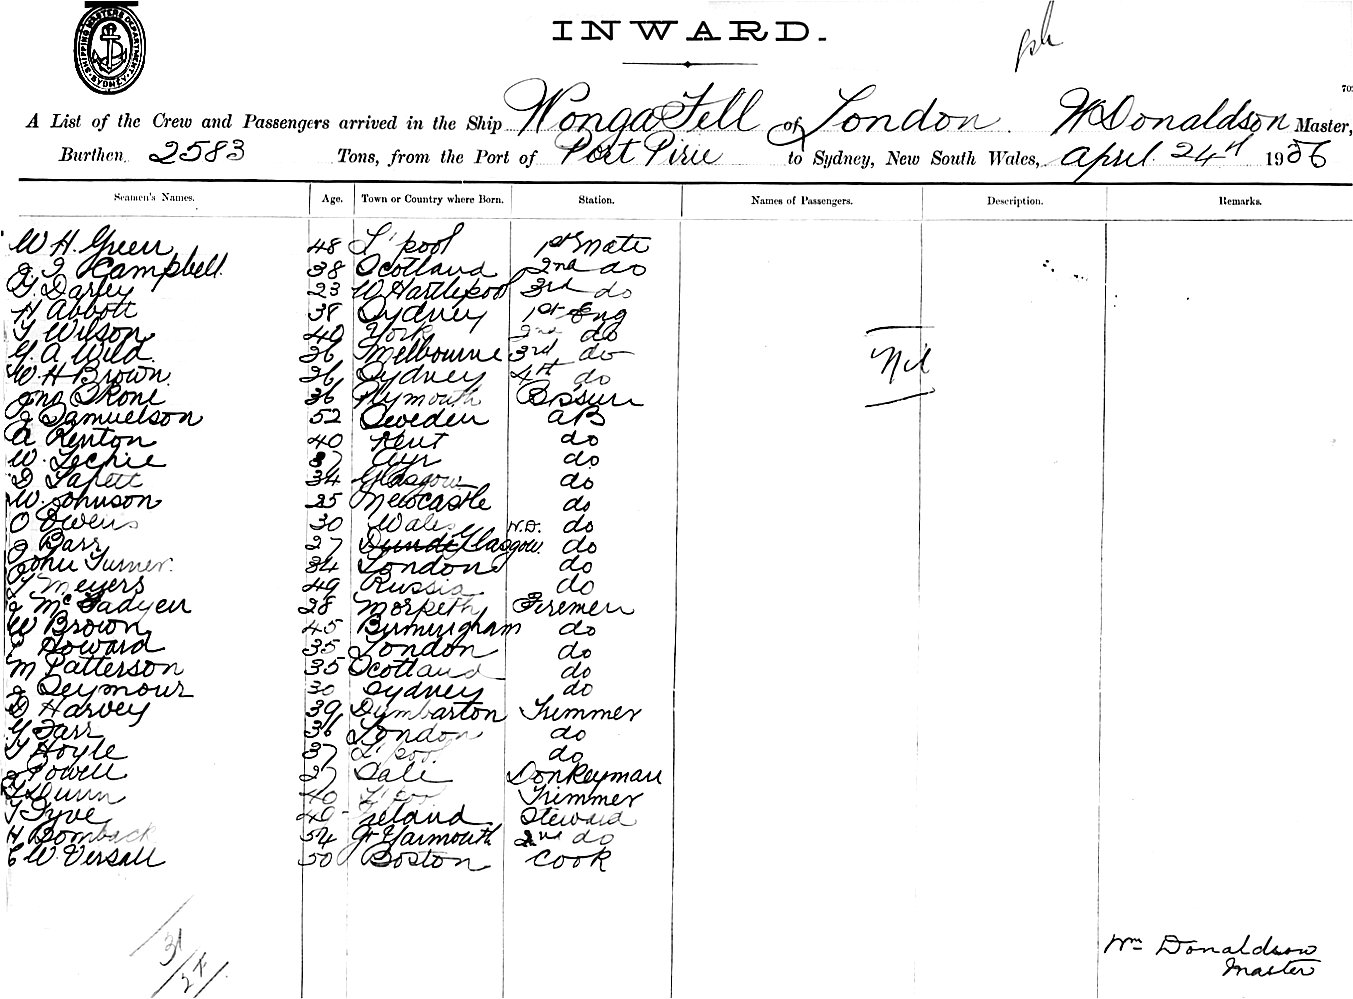 SHIPPING MASTERS DEPARTMENT SYDNEY
INWARD.
A List of the Crew and Passengers arrived in the Ship Wonga Fell of London. W Donaldson Master,
Burthen 2583 Tons, from the Port of Port Pirie to Sydney, New South Wales, April 24th 1906
Seamen's Names. Age. Town or Country where Born. Station. Names of Passengers. Description. Remarks.
W H Green 48 L'pool 1st Mate
Campbell 38 Scotland 2nd do
G. Darley 23 W Hartlepool 3rd do
H Abbott 38 Sydney 1st Eng
T Wilson 40 York 2nd do
G. A Wild. 26 Melbourne 3rd do
Nil
W H Brown 26 Sydney 4th do
Jno 36 Plymouth
J Samuelson 52 Sweden AB
A Renton 40 Kent do
W. Leckie 37 Ayr do
34 Glasgow do
W. Johnson 25 Newcastle do
O Owens 30 Wales do
J Barr 27 Dundee Glasgow. do
John Turner. 34 London do
Meyers 49 Russia do
J McFadyen 28 Morpeth Firemen
W Brown 45 Birmingham do
Howard 35 London do
M Patterson 35 Scotland do
J Seymour 30 Sydney do
D Harvey 39 Dumbarton Trimmer
G Farr 36 London do
T Hoyle 37 L'pool do
J Powell 27 Sale Donkeyman
Dunn 40 L'pool Trimmer
T Tyve 40 Ireland Steward
H Bomback 54 Gt Yarmouth 2nd do
C W. Versall 50 Boston Cook
31
Wm Donaldson
Master